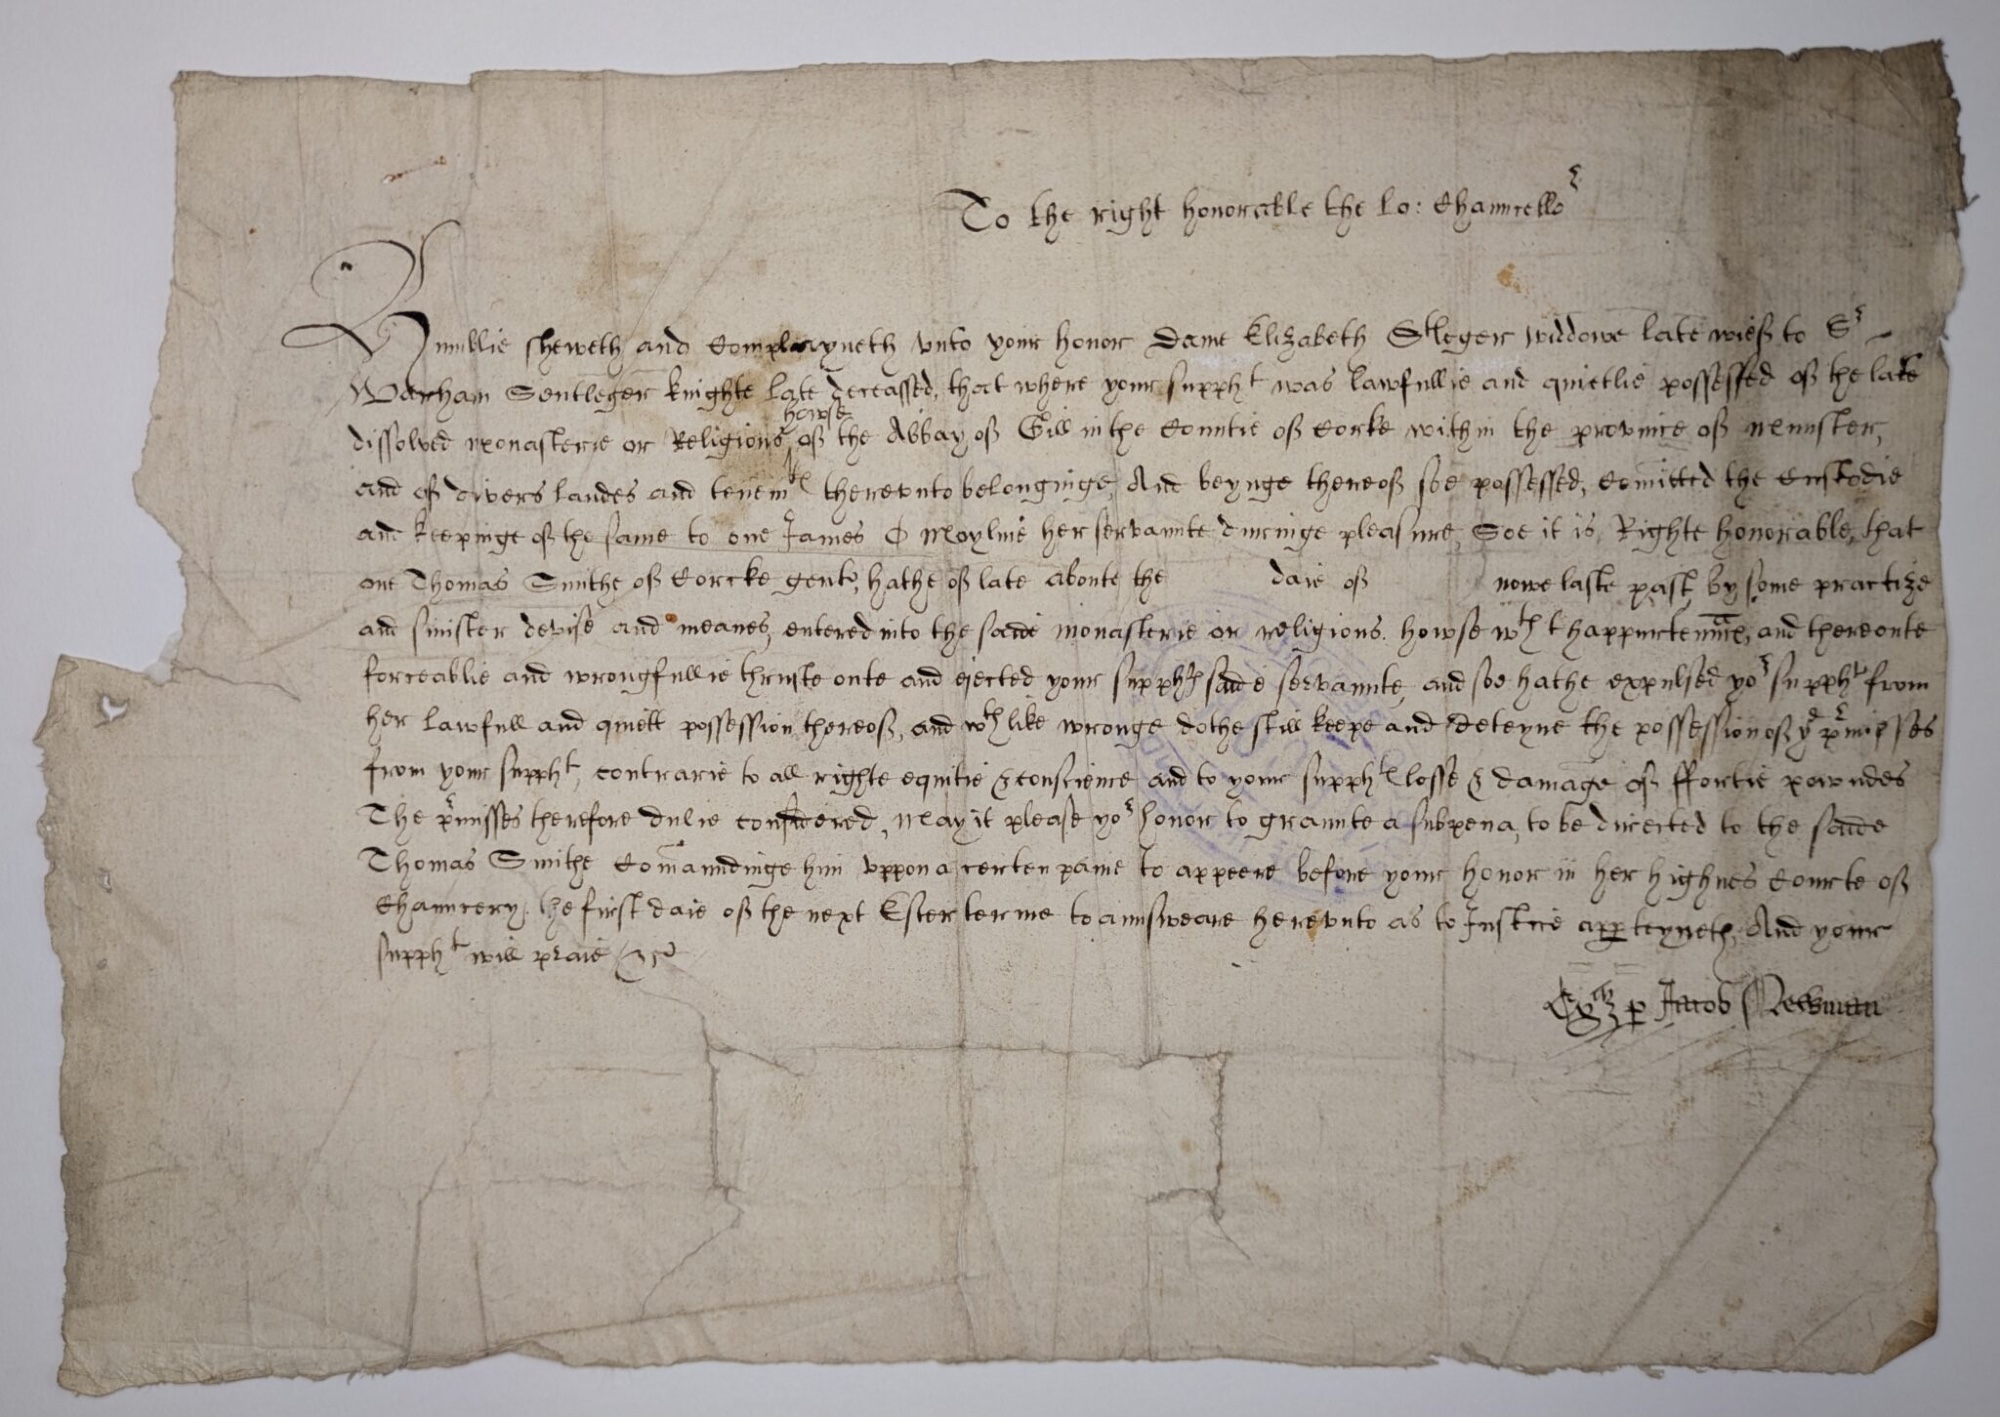 To the right honorable the Lo: Chauncello^r
Humblie sheweth and Complayneth vnto your honor Dame Elizabeth S^tleger widdowe late wief to S^r
Warham Sentleger knighte late deceassed, that where your supph^t was lawfullie and quietlie possessed of the late
howse
dissolved monasterie or Religious of the Abbay of Gill in the Countie of Corke within the province of Mounster,
and of divers landes and tenem^tes therevnto belonginge, And beynge thereof soe possessed, comitted the Custodie
and keepinge of the same to one James O Moyline her servaunte duringe pleasure, Soe it is, Righte honorable, that
one Thomas Smithe of Corcke gent, hathe of late aboute the daie of nowe laste past, by some practize
and sinister devise and meanes, entered into the saide monasterie or religious howse w^th thappurtenn^ances, and thereoute
forceablie and wrongfullie thruste oute and ejected your supph^tes saide servaunte, and soe hathe expulsed yo^r supph^t from
her lawfull and quiett possession thereof, and w^th like wronge dothe still keepe and deteyne the possession of y^e p^rmisses
from your supph^t, contrarie to all righte equitie & conscience and to your supph^tes losse & damage of ffortie powndes
The p^rmisses therefore dulie considered, May it please yo^r honor to graunte a subpena, to be directed to the saide
Thomas Smithe Comaundinge him vppon a certen paine to appeere before your honor in her highnes Courte of
Chauncery, the first daie of the next Ester terme to aunsweare herevnto as to Justice apperteyneth, And your
supph^t will praie &c
p Jacob Newman